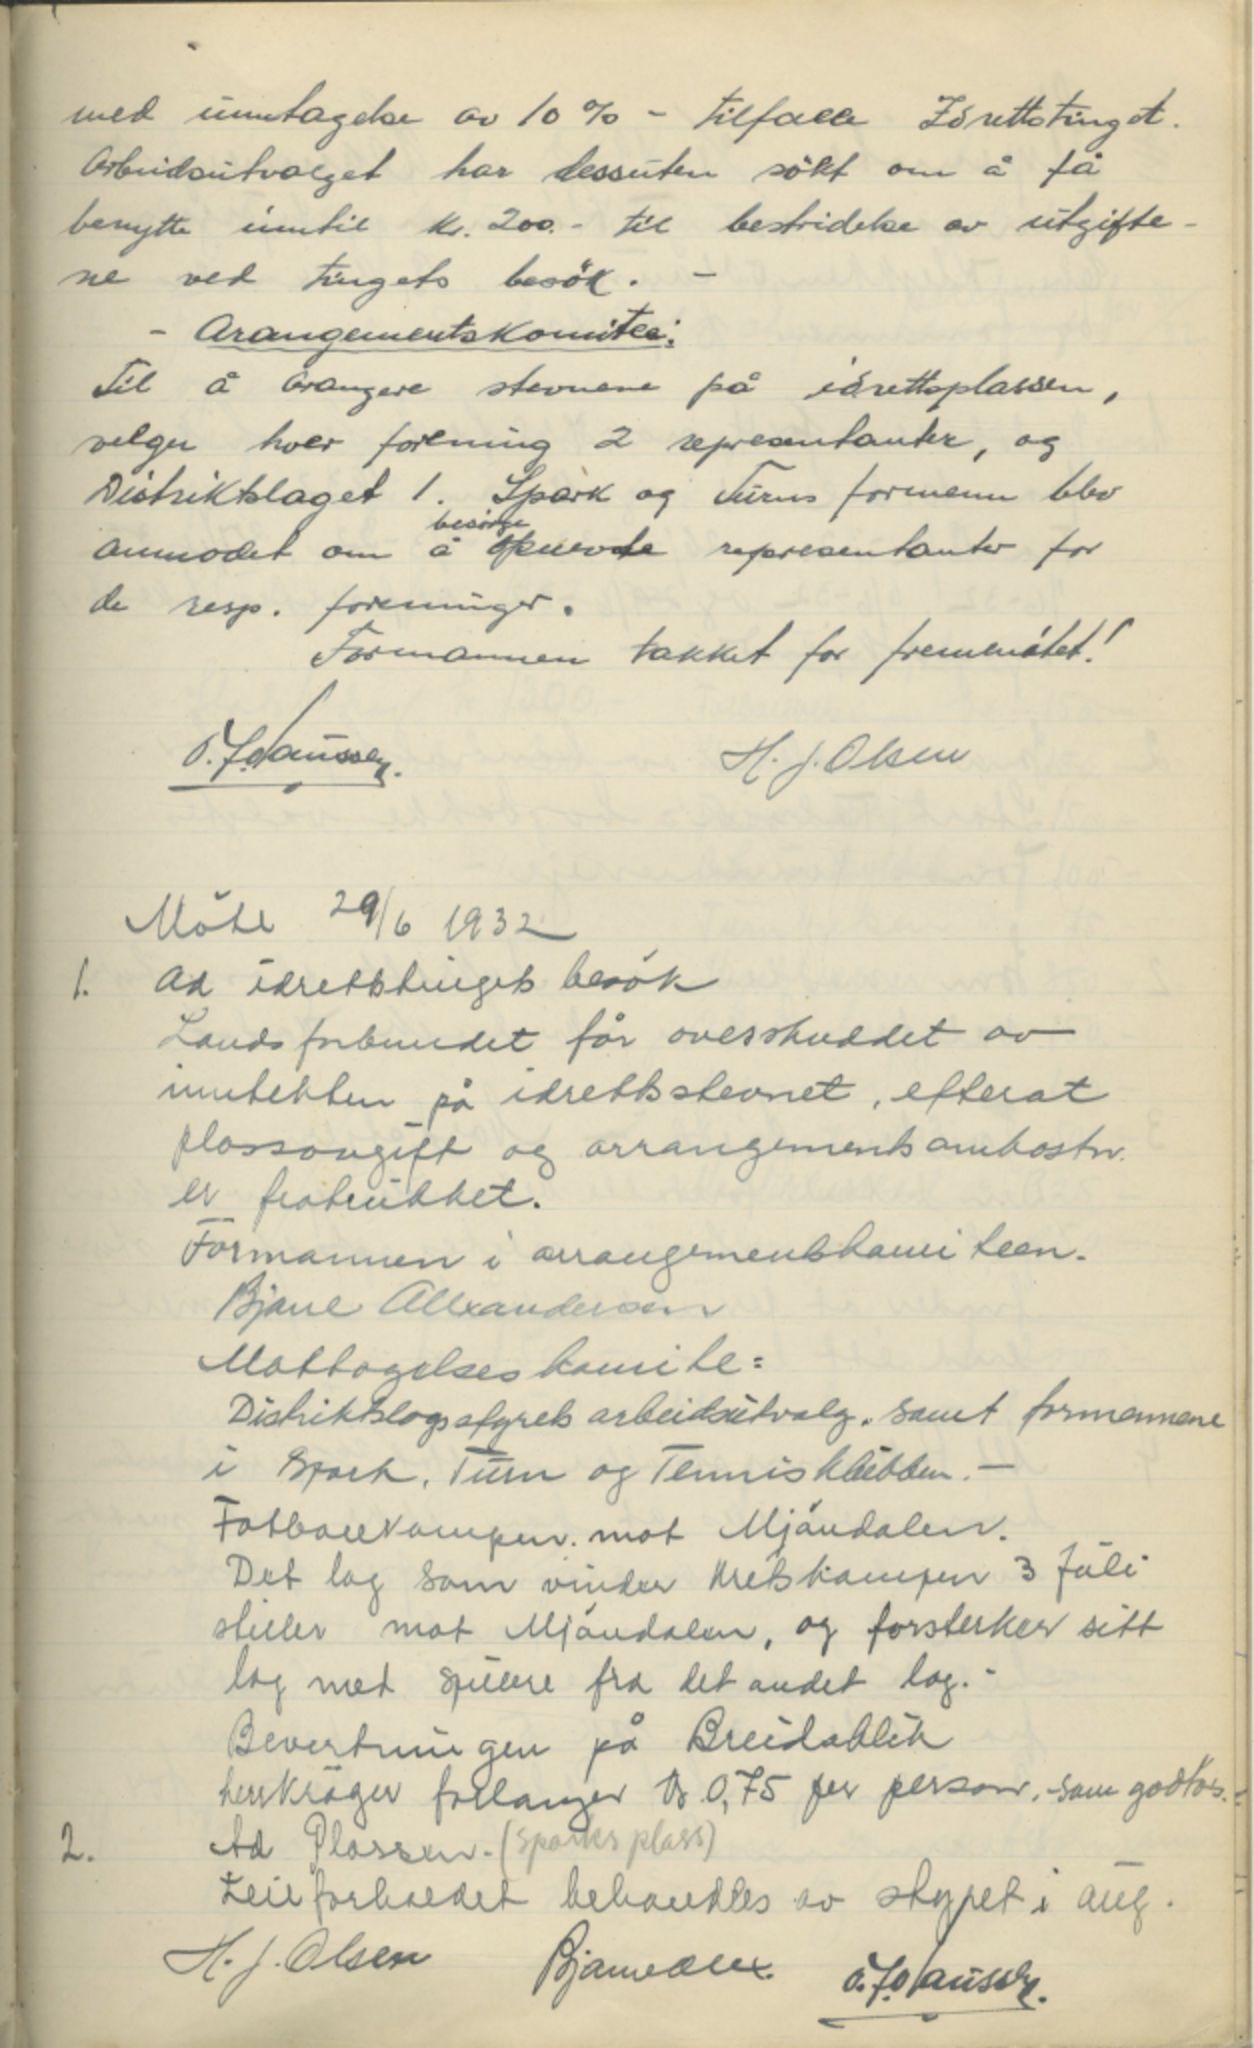 med unntagelse av 10% - tilfalle Idrettstinget.
Arbeidsutvalget har dessuten sökt om å få
benytte inntil kr. 200.- til bestridelse av utgifte-
ne ved tingets besök. -
- Arangementskomitee:
Til å arangere stevnene på idrettsplassen,
velger hver forening 2 representanter, og
Distriktslaget 1. Spark og Turns formenn blev
anmodet om å besörge representanter for
de resp. foreninger.
Formannen takket for fremmötet!
H. J. Olsen
Möte 29/6 1932
1. Ad idrettstingets besök
Landsforbundet får overskuddet av
inntekten på idrettsstevnet, efterat
plassavgift og arrangementsomkostn.
er fratrukket.
Formannen i arrangementskomiteen.
Bjarne Alexandersen
Mottagelseskomite:
Distriktslagsstyrets arbeidsutvalg. samt formennene
i Spark, Turn og Tennisklubben. -
Fotballkampen. mot Mjöndalen.
Det lag som vinder kretskampen 3 Juli
stiller mot Mjöndalen, og forsterker sitt
lag med spillere fra det andet lag. -
Bevertningen på Breidablik
herr Kröger forlanger kr 0,75 per person. som godtas.
2. Ad Plassen. (Sparks plass)
Leieforholdet behandles av styret i aug.
H. J. Olsen Bjarne Alex.